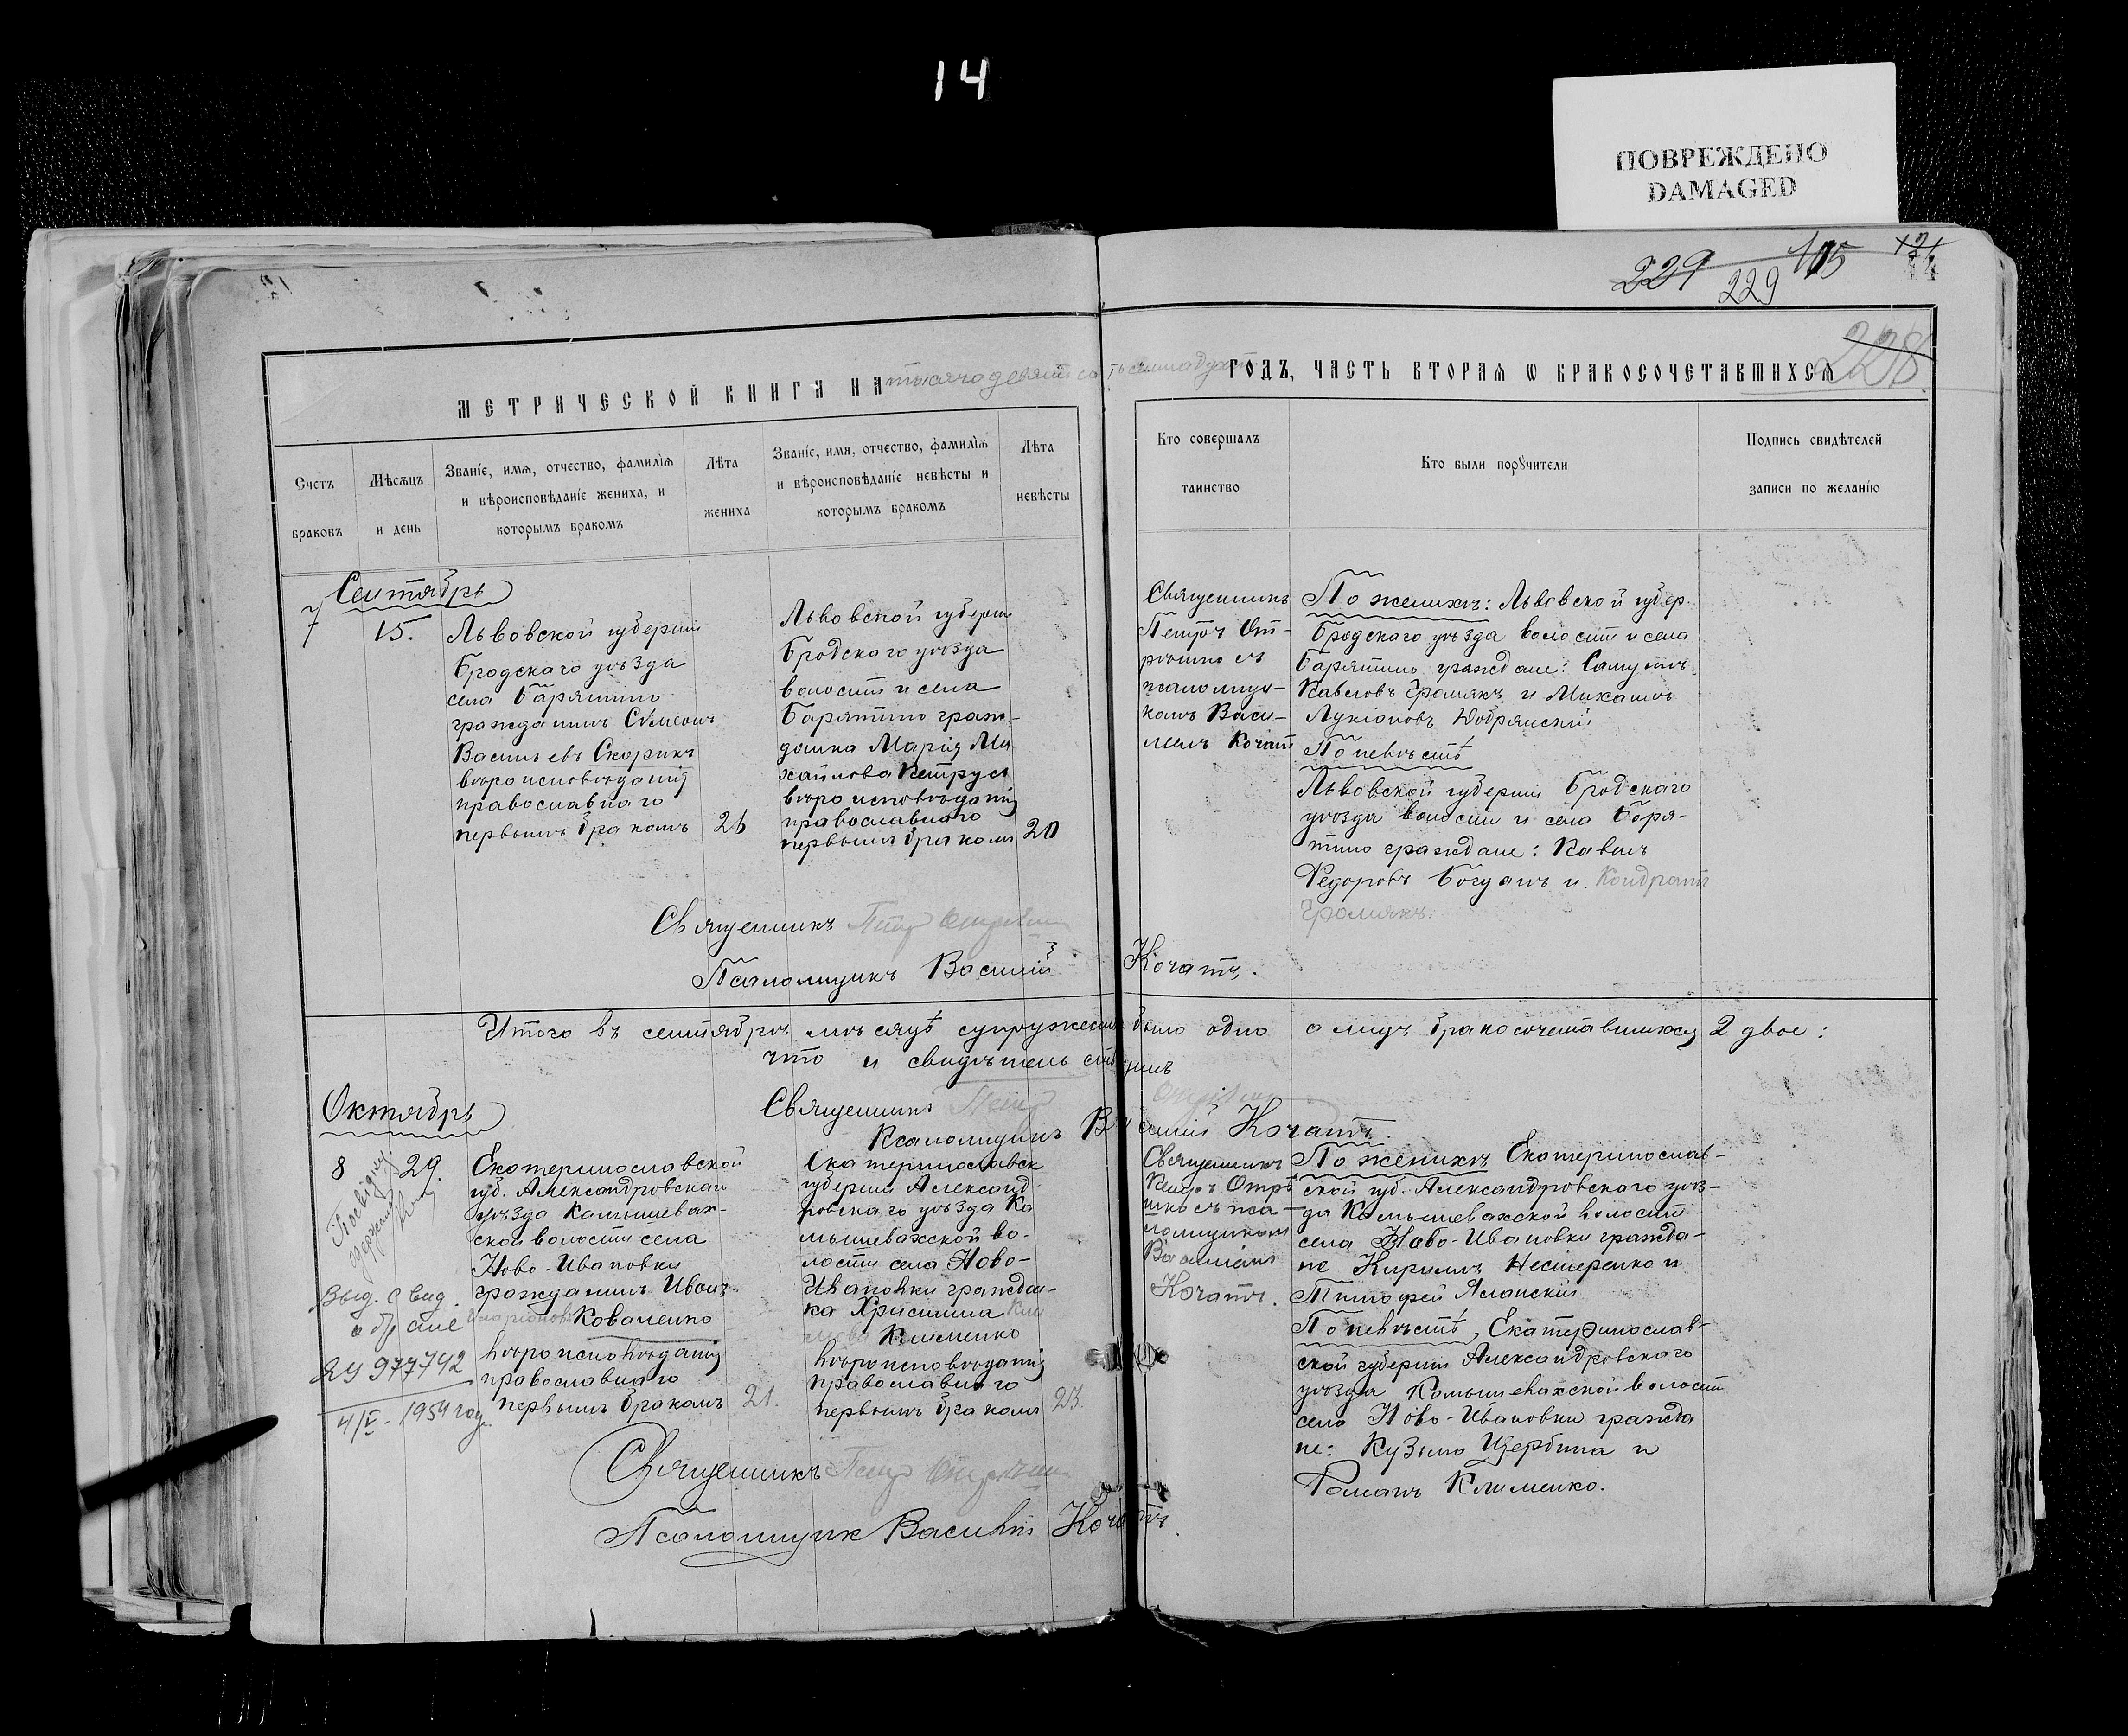 14
ПОВРЕЖДЕНО
DAMAGED
229 115
229
228
МЕТРИЧЕСКОЙ КНИГИ НА тысяча девятсотъ семнадцат ГОДЪ, ЧАСТЬ ВТОРАЯ Ѡ БРАКОСОЧЕТАВШИХСЯ
Счетъ
браковъ
Мѣсяцъ
и день
Званіе, имя, отчество, фамилія
и вѣроисповѣданіе жениха, и
которымъ бракомъ
Лѣта
жениха
Званіе, имя, отчество, фамилія
и вѣроисповѣданіе невѣсты и
которымъ бракомъ
Лѣта
невѣсты
Кто совершалъ
таинство
Кто были поручители
Подпись свидѣтелей
записи по желанію
Сентябрь
7
15.
Львовской губерніи
Бродскаго уѣзда
села Барятино
гражданинъ Сѵмеонъ
Васильевъ Скорикъ
вѣроисповѣданія
православнаго
первымъ бракомъ
26
Львовской губерніи
Бродскаго уѣзда
волости и села
Барятино граж-
данка Марія Ми
хайлова Петрусь
вѣроисповѣданія
православнаго
первымъ бракомъ
20
Священникъ
Петръ От-
рѣшко съ
псаломщи-
комъ Васи-
лемъ Кочатъ
По женихѣ: Львовской губер.
Бродскаго уѣзда волости и села
Барятино граждане:
Павловъ Громякъ и Михаилъ
Лукіановъ
По невѣстѣ
Львовской губерніи Бродскаго
уѣзда волости и села Баря-
тино граждане: Павелъ
Федоровъ Богданъ и Кондратъ
Громякъ.
Священникъ Петр Отрѣшко
Псаломщикъ Василій Кочатъ.
Итого въ сентябрѣ мѣсяцѣ супружествъ было одно а лицъ бракосочетавшихся 2 двое:
что и свидѣтельствуемъ
Священникъ Петр Отрѣшко
Псаломщикъ Василій Кочатъ.
Октябрь
8
29.
Выд. свид.
о браке
ЯУ 977742
4/V - 1954 год.
Екатеринославской
губ. Александровскаго
уѣзда Камышевах-
ской волости села
Ново-Ивановки
гражданинъ Иванъ
Иларіоновъ Коваленко
вѣроисповѣданія
православнаго
первымъ бракомъ
21.
Екатеринославск
губерніи Александ
ровскаго уѣзда Ка
мышевахской во-
лости села Ново-
Ивановки граждан-
ка Христина Кли
мова Клименко
вѣроисповѣданія
православнаго
первымъ бракомъ
23.
Священникъ
Петръ Отрѣ
шко съ пса-
ломщикомъ
Василіемъ
Кочатъ.
По женихѣ Екатеринослав-
ской губ. Александровскаго уѣз-
да Камышевахской волости
села Ново-Ивановки гражда-
не Кириллъ Нестеренко и
Тимофей
По невѣстѣ, Екатеринослав-
ской губерніи Александровскаго
уѣзда Камышевахской волости
села Ново-Ивановки гражда
не: Кузьма Щербина и
Романъ Клименко.
Священникъ Петр Отрѣшко
Псаломщик Василій Кочатъ.